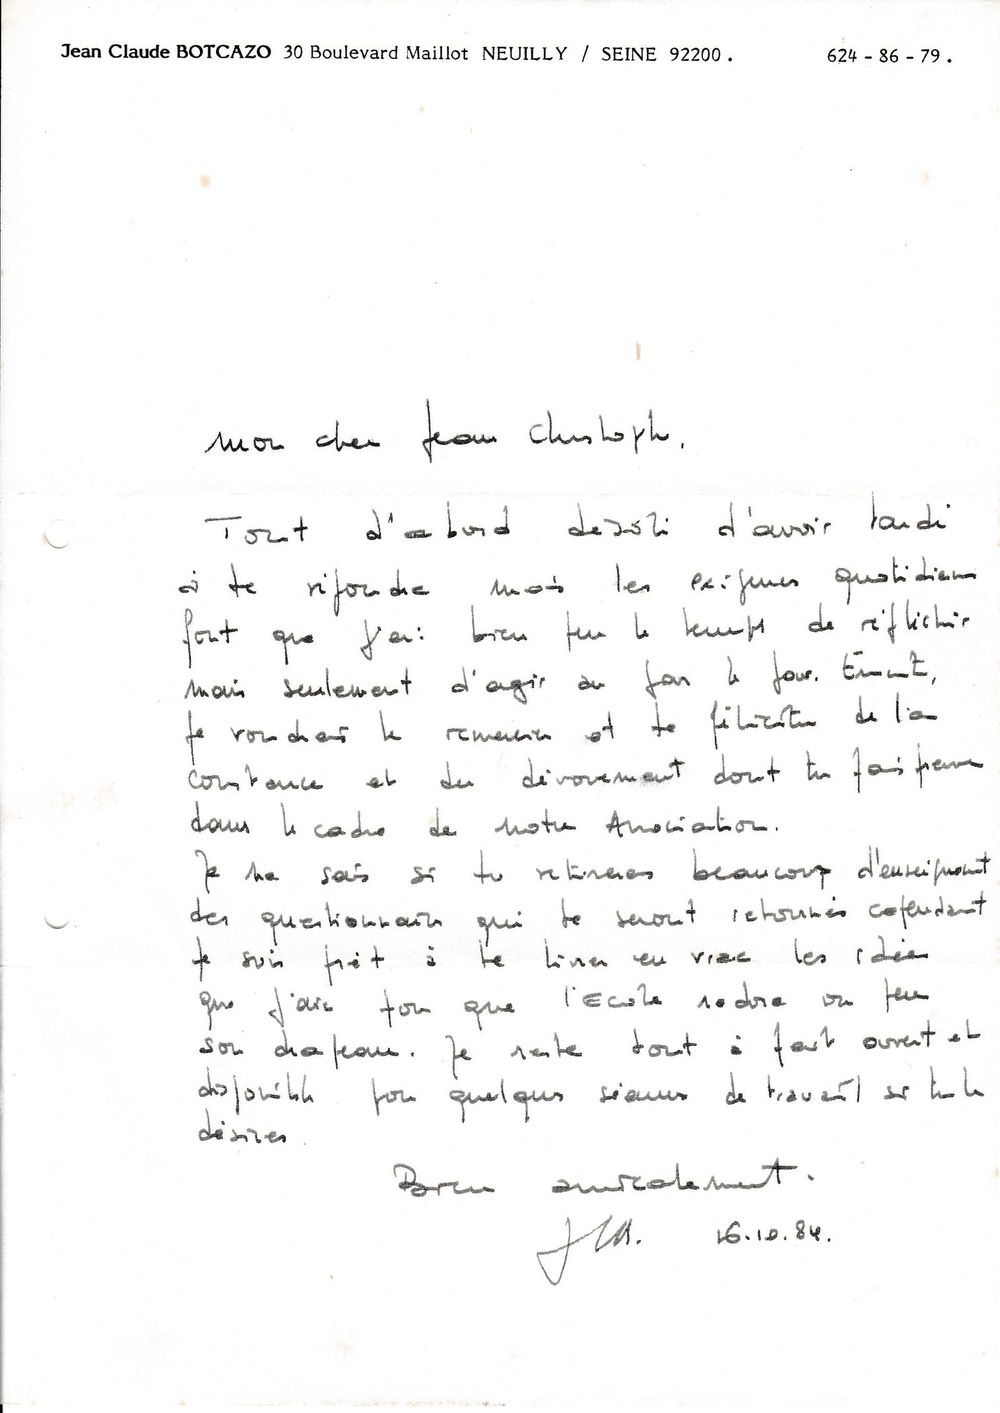 Jean Claude BOTCAZO 30 Boulevard Maillot NEUILLY / SEINE 92200. 624 - 86 - 79.
Mon cher Jean Christophe,
Tout d'abord désolé d'avoir tardé
à te répondre mais les exigences quotidiennes
font que j'ai bien peu le temps de réfléchir
mais seulement d'agir au jour le jour. Ensuite,
je voudrais te remercier et te féliciter de la
constance et du dévouement dont tu fais preuve
dans le cadre de notre Association.
Je ne sais si tu retireras beaucoup d'enseignement
des questionnaires qui te seront retournés cependant
je suis prêt à te livrer en vrac les idées
que j'ai pour que l'Ecole redore un peu
son drapeau. Je reste tout à fait ouvert et
disponible pour quelques séances de travail si tu le
désires.
Bien amicalement.
16.10.84.